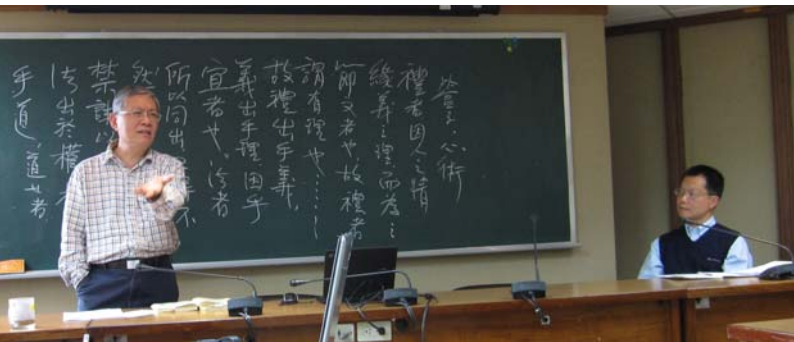 管子.心術
禮者因人之情
緣義之理而為之
節文者也故禮者
謂有理也……
故禮出乎義,
義出乎理因乎
宜者也。法者
所以同出不
然
禁誅以
法出於權
乎道,道也者